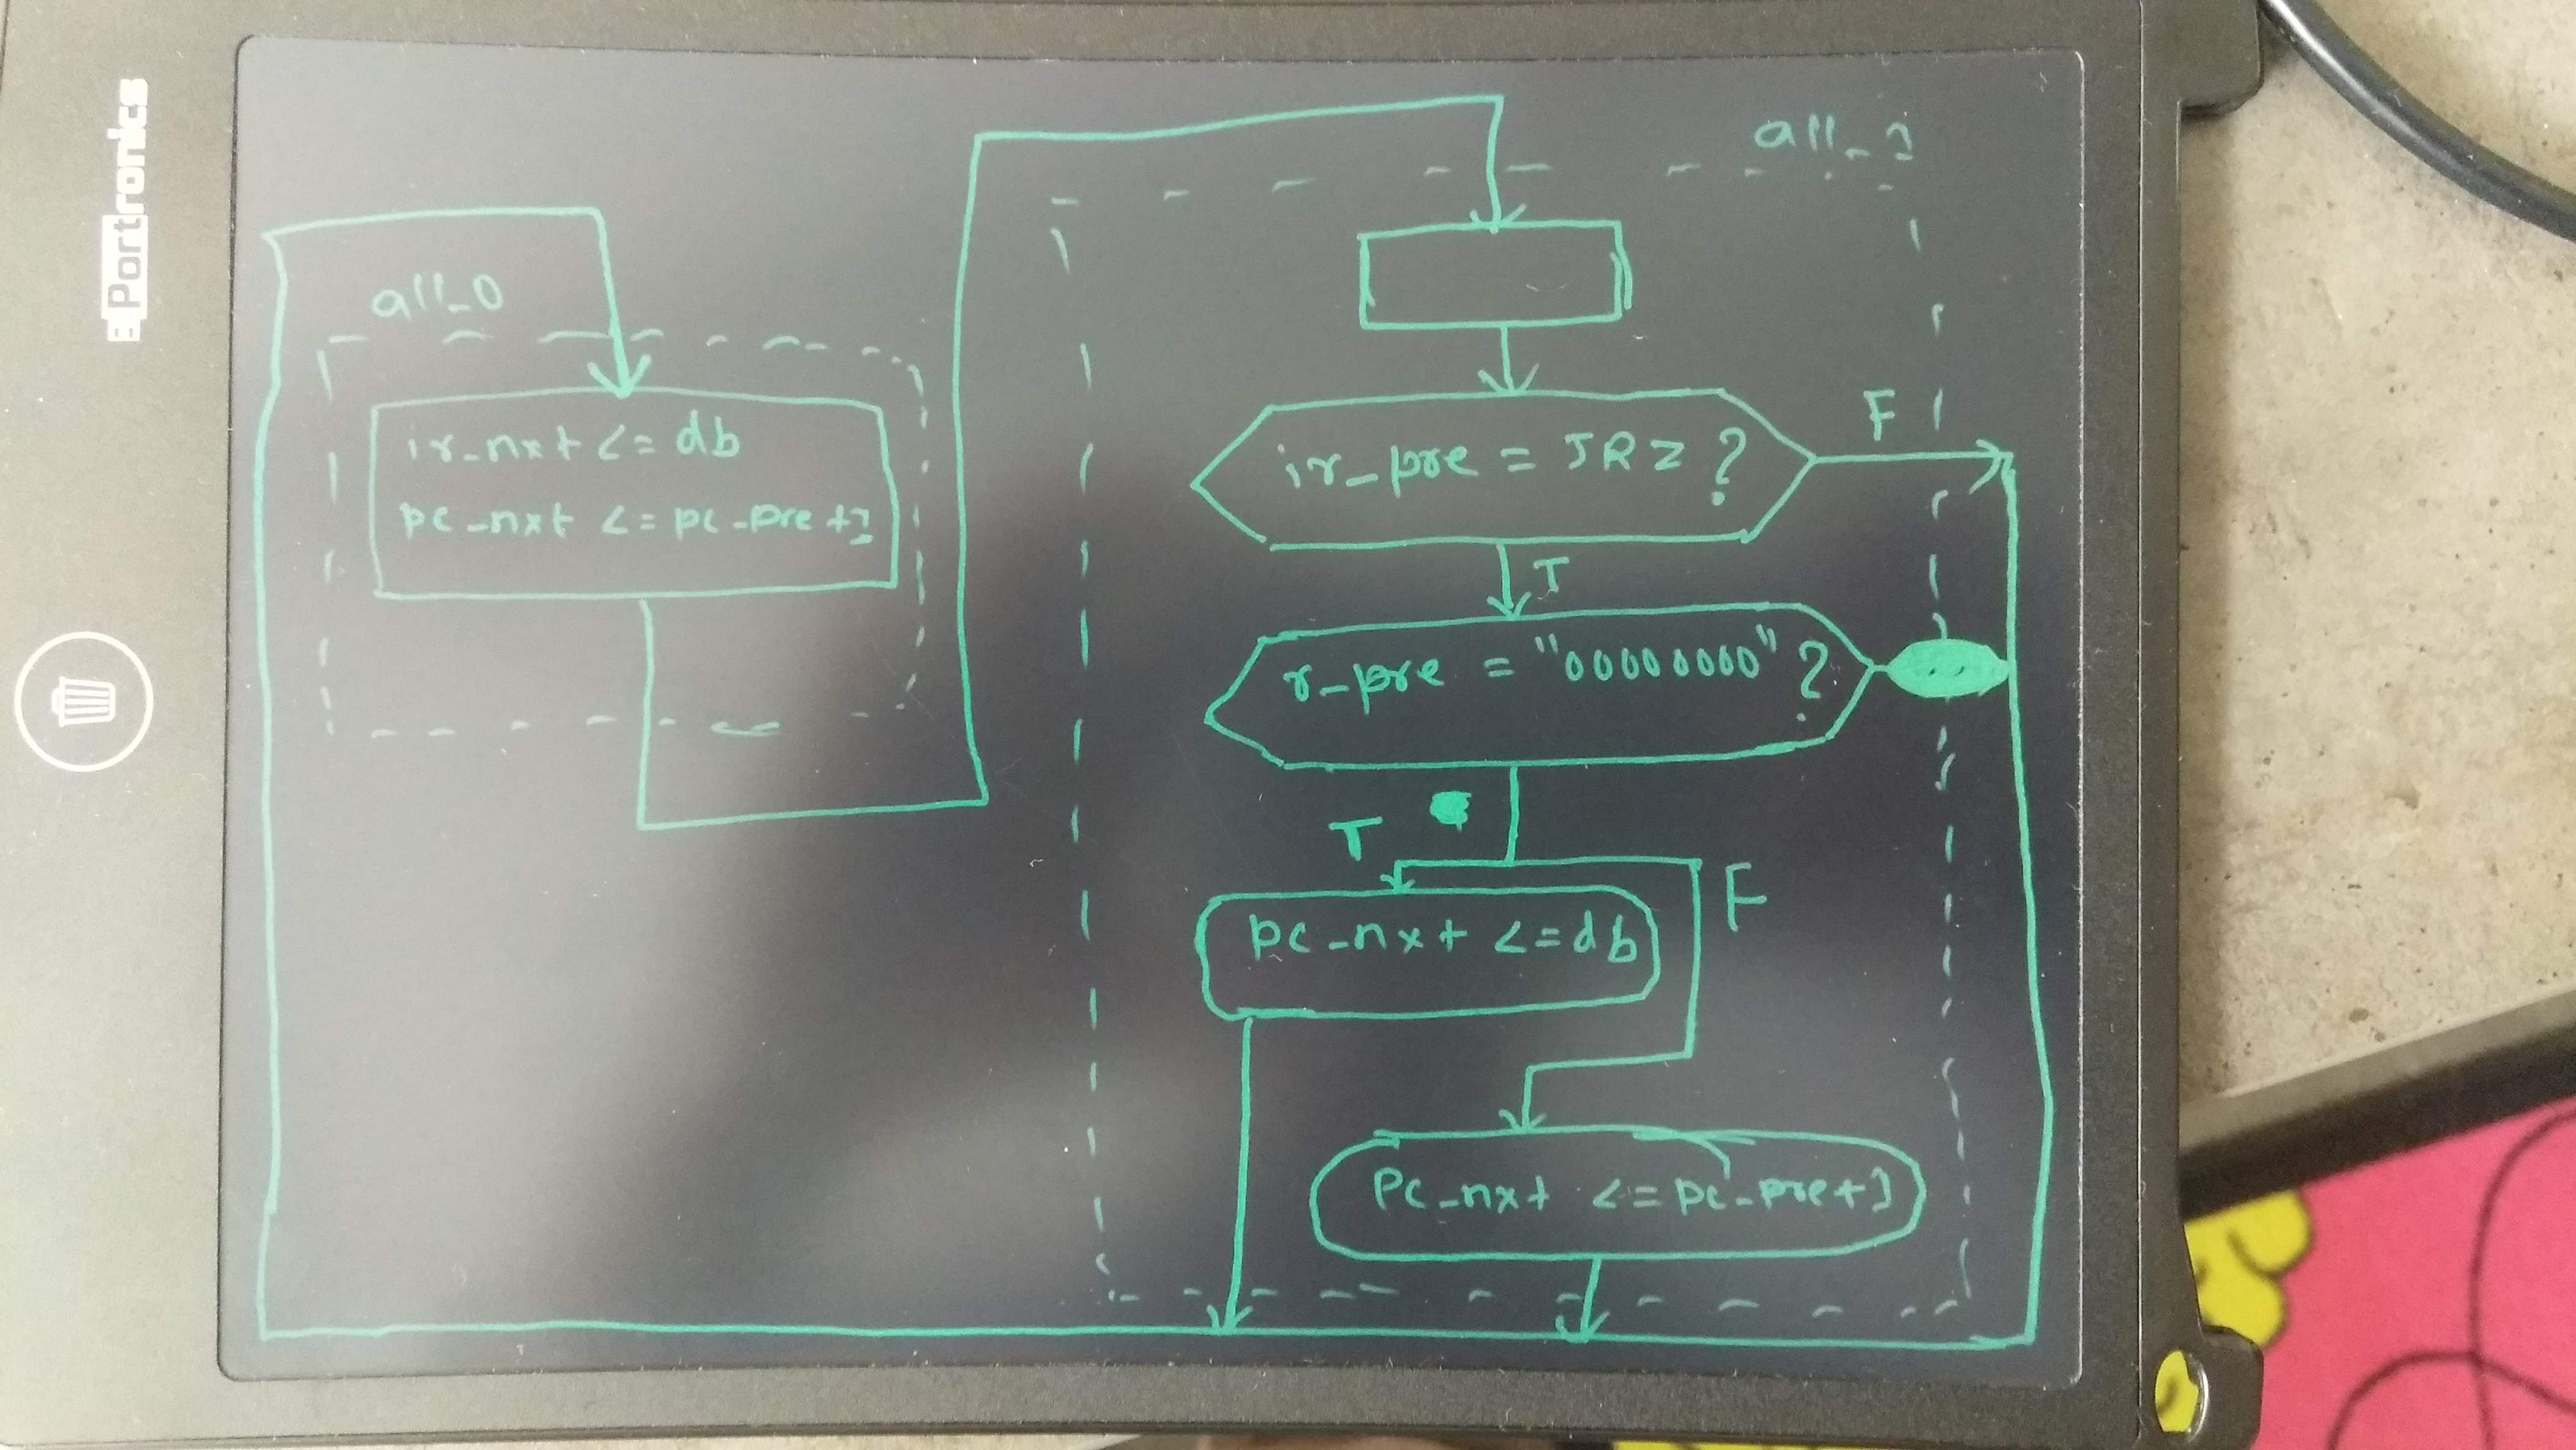 Portronics
all_0
ir_nxt <= db
pc_nxt <= pc_pre +1
all_1
ir_pre = JRZ ?
F
T
r_pre = "00000000" ?
T
F
pc_nxt <= db
pc_nxt <= pc_pre+1